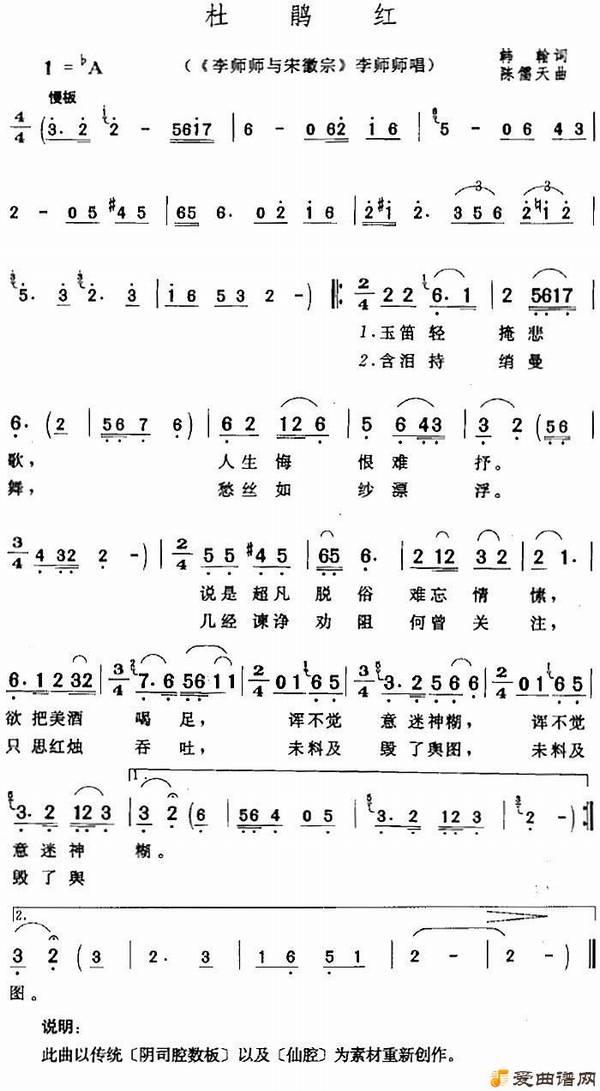 杜 鹃 红
1 = ♭A （《李师师与宋徽宗》李师师唱） 韩 翰 词
陈儒天 曲
慢板
4/4 (3. 2 2 - 5617 | 6 - 062 16 | 5 - 06 43 |
2 - 05 #45 | 65 6. 02 16 | 2#1 2. 356 2♮12 |
5. 3 3 2. 3 | 16 53 2 - ) ‖: 2/4 22 6.1 | 2 5617 |
1.玉笛轻 掩悲
2.含泪持 绡曼
6. (2 | 56 7 6) | 62 126 | 5 643 | 3 2 (56 |
歌， 人生悔 恨难 抒。
舞， 愁丝如 纱漂 浮。
3/4 432 2 - ) | 2/4 55 #45 | 65 6. | 212 32 | 21. |
说是超凡 脱俗 难忘情 愫，
几经谏诤 劝阻 何曾关 注，
6.12 32 | 3/4 7.6 5611 | 2/4 01 65 | 3/4 3.2 56 6 | 2/4 01 65 |
欲把美酒 喝足， 诨不觉 意迷神糊， 诨不觉
只思红烛 吞吐， 未料及 毁了舆图， 未料及
1.
3.2 123 | 3 2 (6 | 564 05 | 3.2 123 | 2 - ) :‖
意迷神 糊。
毁了舆
2.
3 2 (3 | 2. 3 | 15 16 | 2 - | 2 - ) ‖
图。
说明：
此曲以传统〔阴司腔数板〕以及〔仙腔〕为素材重新创作。
爱曲谱网